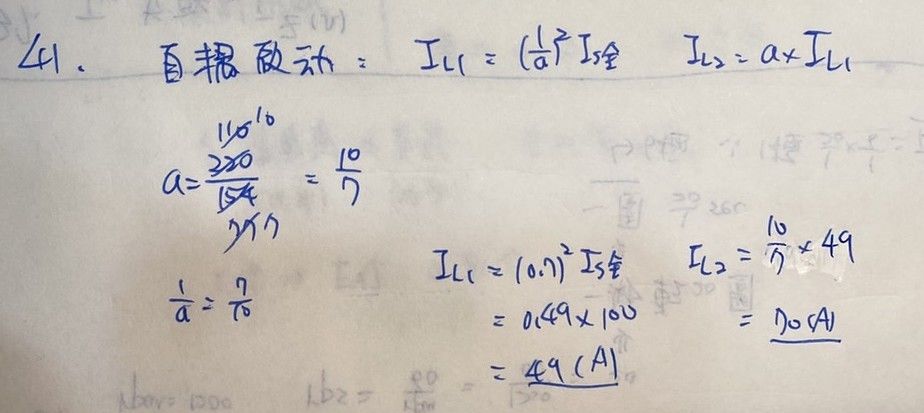 41. 自耦啟动: I_L1 = (1/a)² I_S全 I_L2 = a × I_L1
110 10
a = 220/154 = 10/7
77 7
1/a = 7/10
I_L1 = (0.7)² I_S全
= 0.49 × 100
= 49 (A)
I_L2 = 10/7 × 49
= 70 (A)